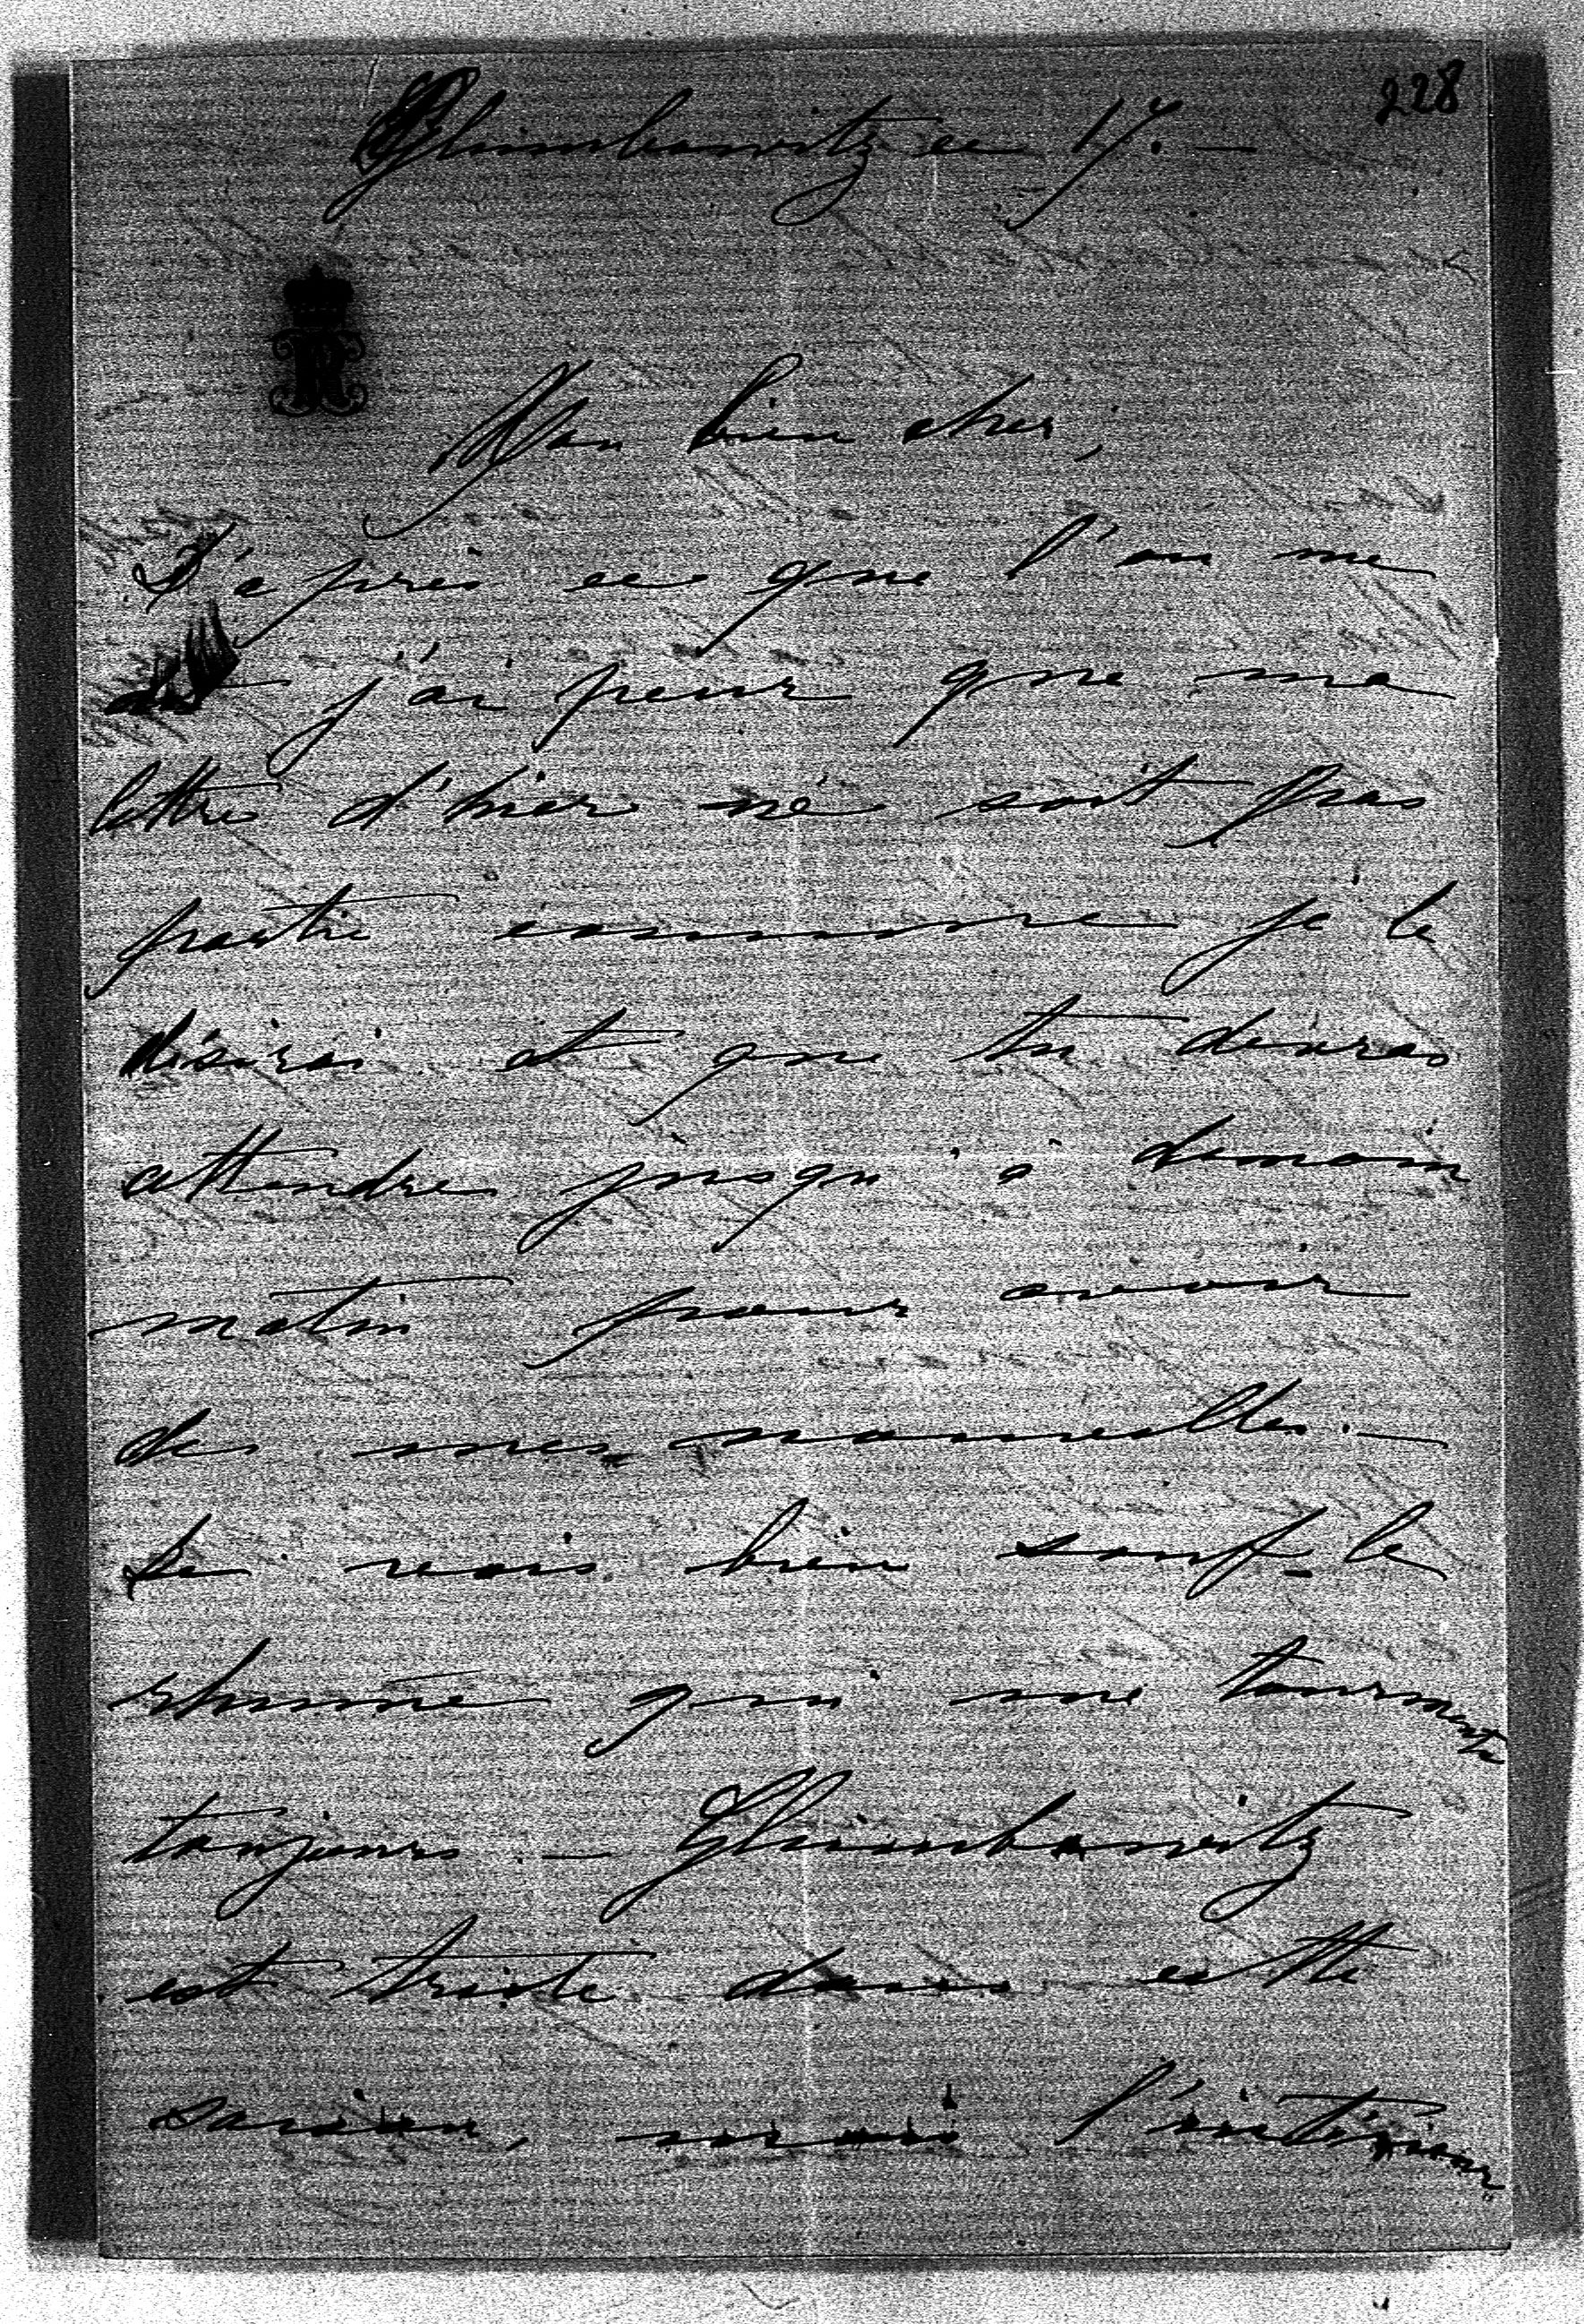 228
Gluimbowitz ce 17. —
R
Mon bien cher,
D'après ce que l'on me
dit j'ai peur que ma
lettre d'hier ne soit pas
partie comme je le
désirai et que tu devras
attendre jusqu'à demain
matin pour avoir
de mes nouvelles. —
Je vais bien sauf le
rhume qui me tourmente
toujours. — Gluimbowitz
est triste dans cette
saison, mais l'intérieur